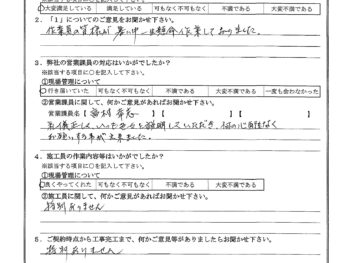 大変満足している 満足している 可もなく不可もなく 不満である 大変不満である
2.「1」についてのご意見をお聞かせ下さい。
作業員の皆様が暑い中一生懸命作業しておりました。
3.弊社の営業課員の対応はいかがでしたか?
※該当する項目に○を記入して下さい。
①現場管理について
行き届いていた 可もなく不可もなく 不満である 大変不満である 一度も会わなかった
②営業課員に関して、何かご意見があればお聞かせ下さい。
営業課員名【 】【 】【 】
お願いする事が出来ました。
4.施工員の作業内容等はいかがでしたか?
※該当する項目に○を記入して下さい。
①現場管理について
良くやってくれた 可もなく不可もなく 不満である 大変不満である
②施工員に関して、何かご意見があればお聞かせ下さい。
特別ありません
5.ご契約時点から工事完工まで、何かご意見等がありましたらお聞かせ下さい。
特別ありません。